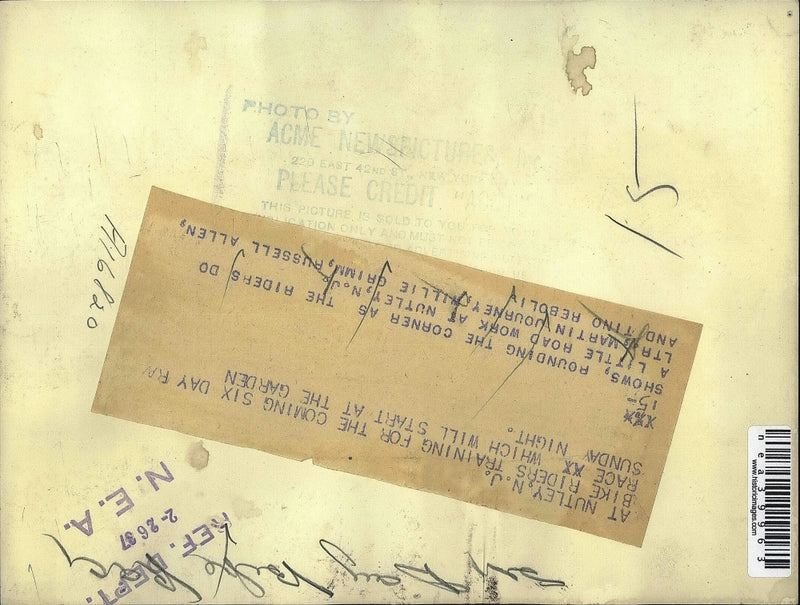 PHOTO BY
ACME NEWSPICTURES
220 EAST 42ND ST.
PLEASE CREDIT "AC
THIS PICTURE IS SOLD TO YOU
ICATION ONLY AND MUST
A16820
15-
AT NUTLEY, N.J.
BIKE RIDERS TRAINING FOR THE COMING SIX DAY RA
RACE XX WHICH WILL START AT THE GARDEN
SUNDAY NIGHT.
XXX
15-
SHOWS, ROUNDING THE CORNER AS THE RIDERS DO
A LITTLE ROAD WORK AT NUTLEY, N.J.,
LTR, MARTIN JOURNEY, WILLIE GRIMM, RUSSELL ALLEN,
AND TINO REBOLI
N.E.A.
2-26 37
REF. DEPT.
Day Bike
nea39963
www.historicimages.com